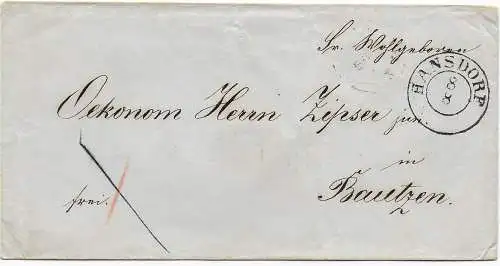 Sr. Wohlgeboren
HANSDORF
8
8
Oekonom Herrn Zipser jun.
in
frei.
Bautzen.